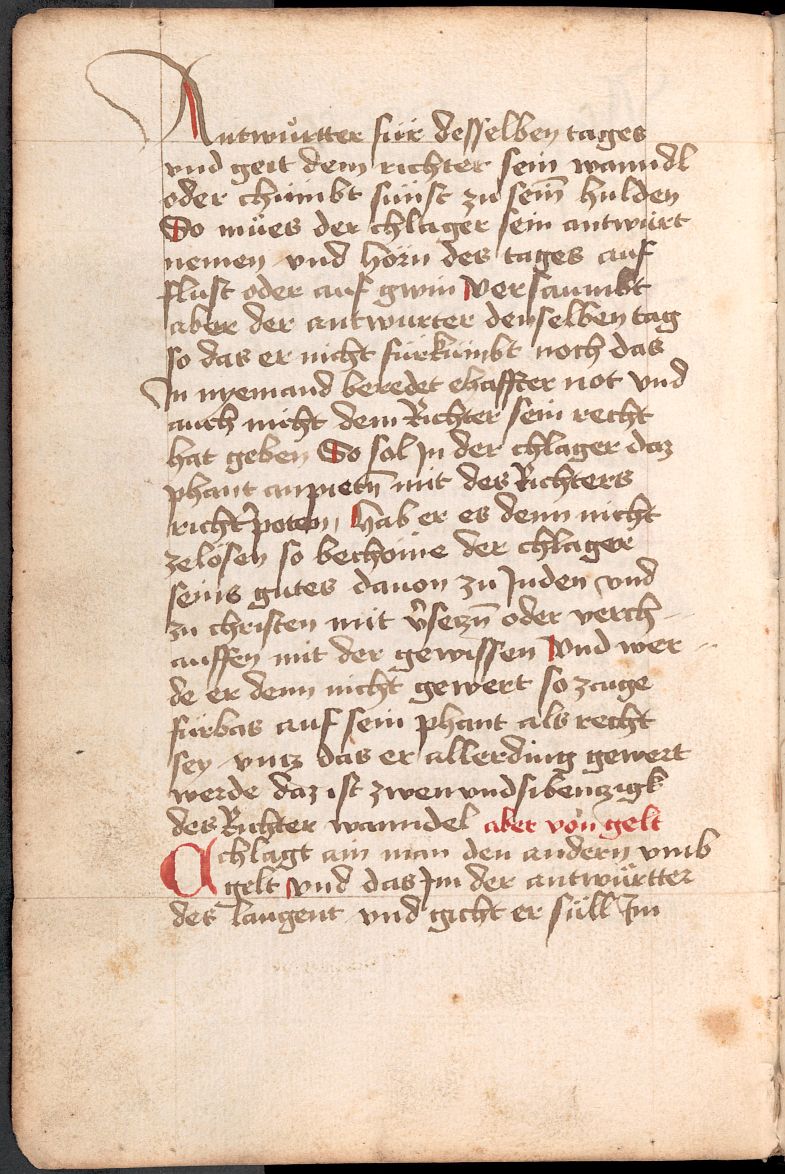 Antwürtter für desselben tages
vnd geit dem richter sein wanndl
oder chumbt sünst zu sein̄ hulden
So mües der chlager sein antwürt
nemen vnd hörn des tages auf
flust oder auf gwin versaumbt
aber der antwurter denselben tag
so das er nicht fürkumbt noch das
In nyemand beredet ehaffter not vnd
auch nicht dem Richter sein recht
hat geben So sol In der chlager daz
phant anpietn̄ mit des Richters
richt poten, hab er es denn nicht
zelösen so bechöme der chlager
seins gutes dauon zu Juden vnd
zu christen mit v̄seczn̄ oder verch
auffen mit der gewissen vnd wer
de er denn nicht gewert so zauge
fürbas auf sein phant als recht
sey vncz das er allerding gewert
werde daz ist zwenvndsibenczigk
des Richter wanndel aber von gelt
Chlagt ain man den andern vmb
gelt vnd das Im der antwürtter
des laugent vnd gicht er süll Im